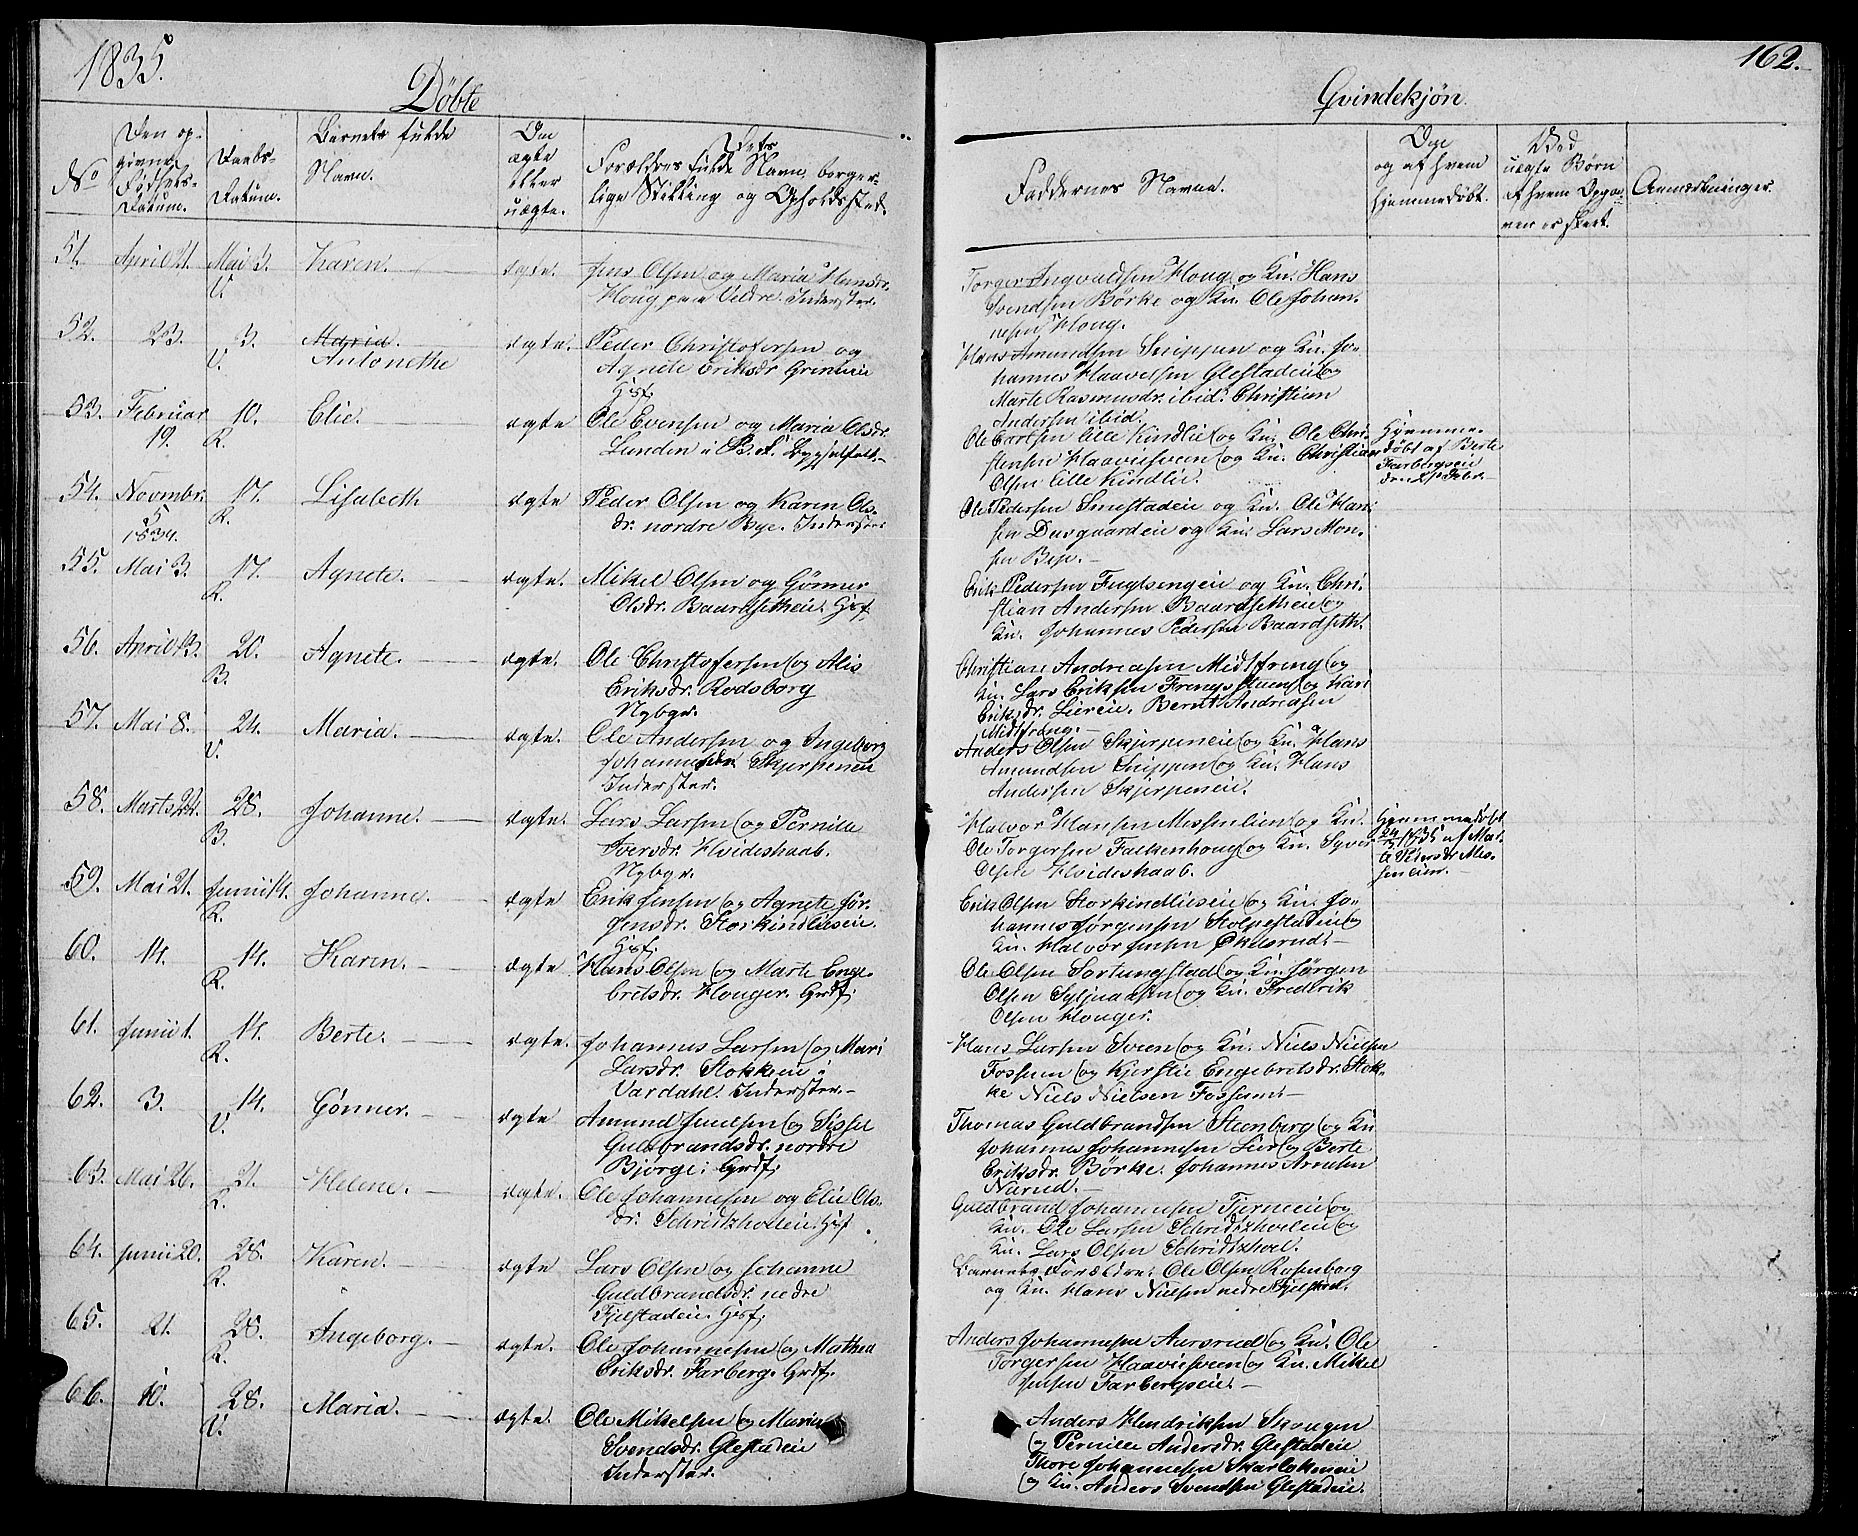 1835.
162.
Döbte
Qvindekjön.
No
Den op-
givne
Födsels-
Datum.
Daabs-
Datum.
Barnets fulde
Navn.
Om
ægte
eller
uægte.
Forældres fulde Navn, borger-
lige Stilling og Opholdssted.
Faddernes Navne.
og af hvem
hjemmedöbt.
Ved
uægte Börn
af hvem Opga-
ven er skeet.
Anmærkninger.
51. April 21. Mai 3. Karen. ægte. Jens Olsen og Maria Hansdr.
V. Houg paa Veldre. Inderster.
Torger Ingvaldsen Houg og Kn. Hans
Svendsen Börke og Kn. Ole Johan-
nesen Houg.
52. 23. 3. Maria. ægte. Peder Christofersen og
V. Antonethe Agnete Eriksdr.
Hsf.
Hans Amundsen Snippen og Kn. Jo-
hannes Haavelsen Glestadeie og
Marte Rasmusdr. ibid. Christian
Andersen ibid.
53. Februar 10. Elie. ægte Ole Evensen og Maria Olsdr.
19. R. Lunden i B. F. Bygselfolk.
Ole Carlsen lille Kindlie og Kn. Ole Chri-
stensen Haavieshveen og Kn. Christian
Olsen lille Kindlie.
Hjemme-
döbt af Berte
Farbergseie
54. Novmbr. 17. Lisabeth ægte Peder Olsen og Karen Ols-
5 R. dr. nordre Bye. Inderster
1834.
Ole Pedersen Smestadeie og Kn. Ole Han-
sen Dusgaardeie og Kn. Lars Mon-
sen Bye.
55. Mai 3. 17. Agnete. ægte. Mikel Olsen og Gönner
R. Olsdr. Baardsetheie. Hsf.
Erik Pedersen Fuglsengeie og Kn. Chri-
stian Andersen Baardsetheie og
Kn. Johannes Pedersen Baardseth.
56. April 13. 20. Agnete. ægte. Ole Christofersen og Alis
B. Eriksdr. Rodsborg
Nybgr.
Christian Andreasen Midtfreng og
Kn. Lars Eriksen Frengstuen og Kari
Eriksdr. Liereie. Bernt Andreasen
Midtfreng.
57. Mai 8. 24. Maria. ægte. Ole Andersen og Ingeborg
V. Johannesdr. Skjerpeneie
Inderster.
Anders Olsen Skjerpeneie og Kn. Hans
Amundsen Snippen og Kn. Hans
Andersen Skjerpeneie.
58. Marts 24. 28. Johanne. ægte. Lars Larsen og Pernille
B. Iversdr. Hvideshaab.
Nybgr.
Halvor Hansen Messenlien og Kn.
Ole Torgersen Falkenhoug og Kn. Syver
Olsen Hvideshaab.
Hjemmedöbt
59. Mai 21. Junii 14. Johanne. ægte Erik Jensen og Agnete Jör-
R. gensdr. Storkindlieseie.
Hsf.
Erik Olsen Storkindlieseie og Kn. Jo-
hannes Jörgensen Stolpestadeie og
Kn. Halvor Jensen Ökelsrud.
60. 14. 14. Karen. ægte Hans Olsen og Marte Enge-
R. bretsdr. Houger. Grdf.
Ole Olsen Sortungstad og Kn. Jörgen
Olsen Syljuaasen og Kn. Frederik
Olsen Houger.
61. Junii 1. 14. Berte. ægte. Johannes Larsen og Mari
R. Larsdr. Stokkeie i
Vardahl. Inderster.
Hans Larsen Sveen og Kn. Niels Nielsen
Fossum og Kjerstie Engebretsdr. Stok-
ke Niels Nielsen Fossum.
62. 3. 14. Gönner. ægte Amund Juelsen og Sissel
V. Guldbrandsdr. nordre
Bjørge. Grdf.
Thomas Guldbrandsen Steenberg og Kn.
Johannes Johannesen Lier og Berte
Eriksdr. Börke. Johannes Arnesen
Narud.
63. Mai 26. 21. Helene. ægte. Ole Johannesen og Elie Ols-
R. dr. Schridtzholeie. Hsf.
Guldbrand Johannesen Tjerneie og
Kn. Ole Larsen Schridtzholeie og
Kn. Lars Olsen Schridtzhol.
64. Junii 20. 28. Karen. ægte Lars Olsen og Johanne
R. Guldbrandsdr. nedre
Fjelstadeie. Hsf.
Barnets Forældre. Ole Olsen Rosenborg
og Kn. Hans Nielsen nedre Fjelstad.
65. 21. 28. Ingeborg. ægte. Ole Johannesen og Mathea
R. Eriksdr. Farberg. Grdf.
Anders Johannesen Aarsrud og Kn. Ole
Torgersen Haavieshveen og Kn. Mikel
Jensen Farbergseie.
66. 10. 28. Maria. ægte. Ole Mikelsen og Maria
V. Svendsdr. Glestadeie
Inderster.
Anders Hendriksen Skougen
og Pernille Andersdr. Glestadeie
Thore Johannesen Skarlokeneie
og Kn. Anders Svendsen Glestadeie.